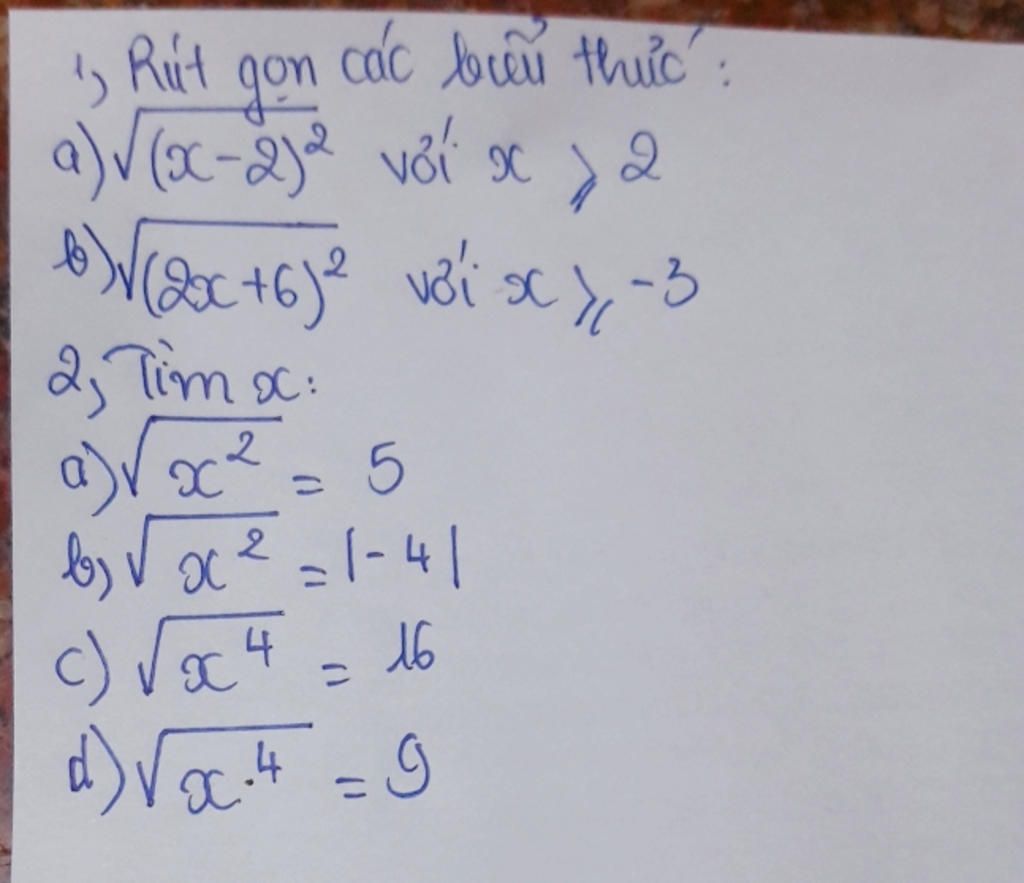 1, Rút gọn các biểu thức:
a) √(x-2)² với x ⩾ 2
b) √(2x+6)² với x ⩾ -3
2, Tìm x:
a) √x² = 5
b, √x² = |-4|
c) √x⁴ = 16
d) √x⁴ = 9